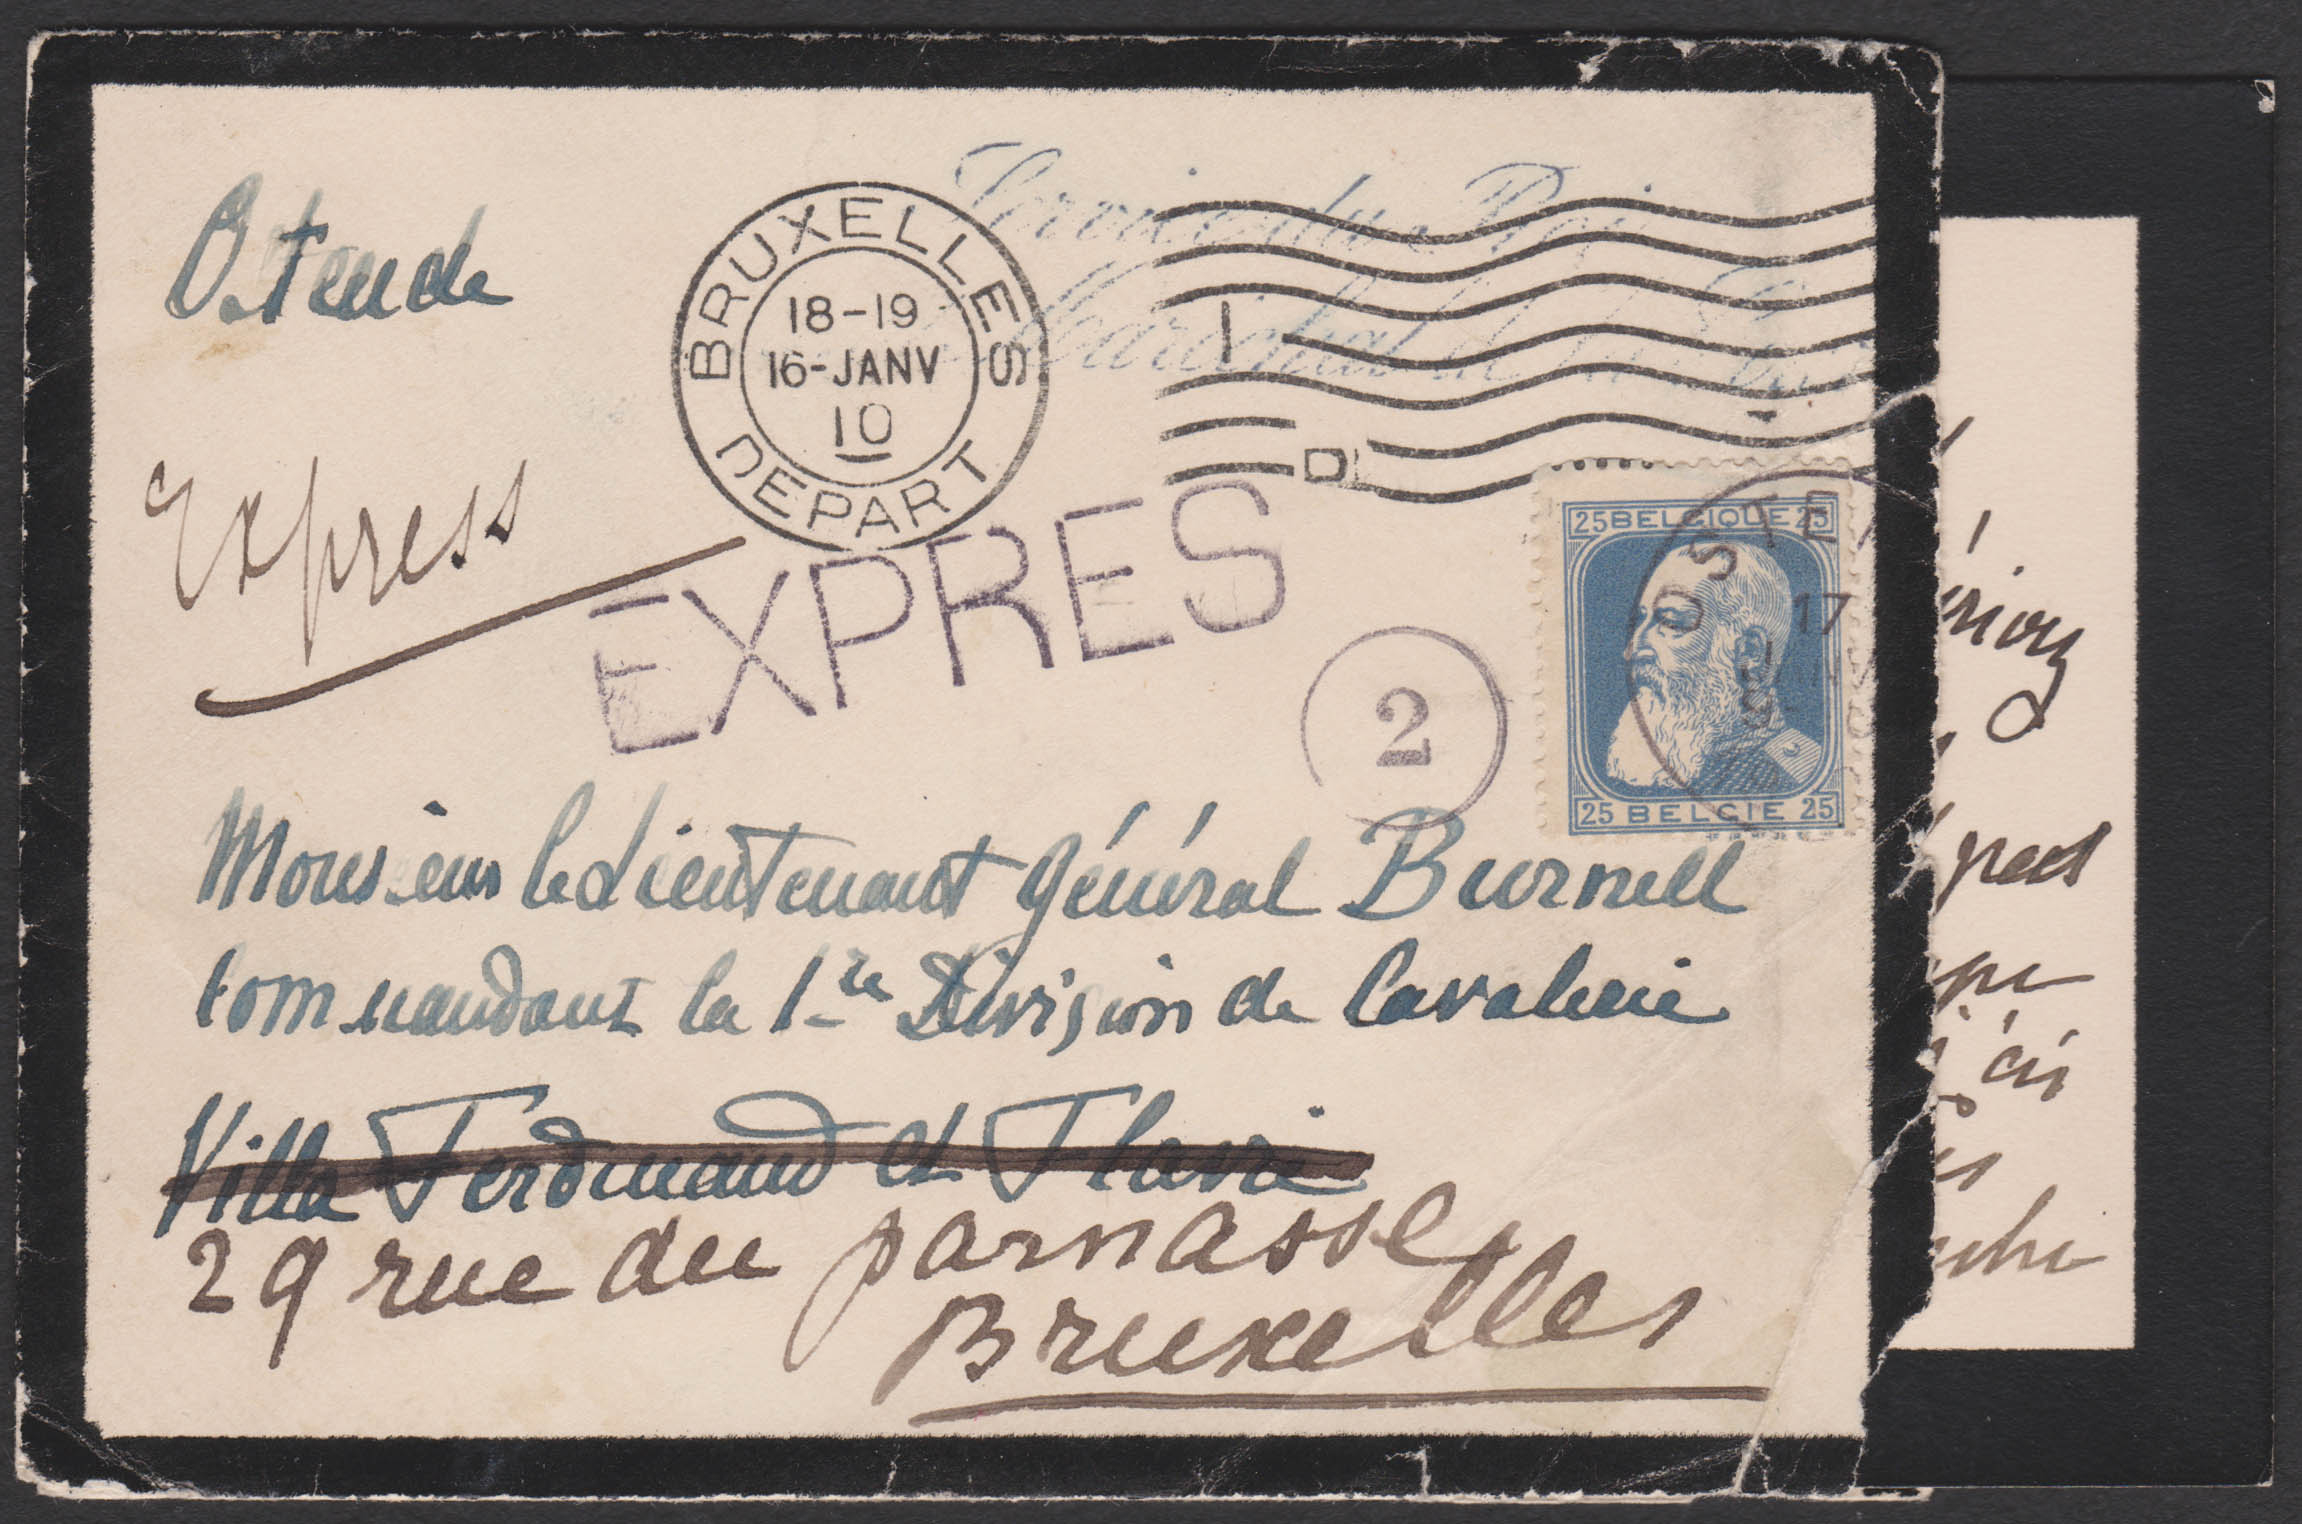 Service du Roi
Maréchal de la Cour
Ostende
BRUXELLES
18-19
16-JANV
10
DEPART
Express
EXPRES
2
25 BELGIQUE 25
OSTE
17
25 BELGIE 25
Monsieur le Lieutenant Général Burnell
Commandant la 1re Division de Cavalerie
Villa Ferdinand et Flavie
29 rue du parnasse
Bruxelles